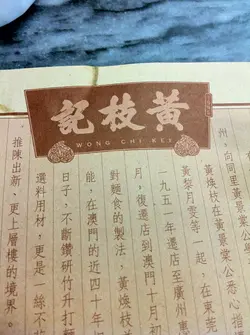 黃枝記
WONG CHI KEI
州,向同里黃景棠公學
黃煥枝在黃景棠公悉心指
黃黎月愛等一起,在東莞
一九五一年遷店至廣州惠
月,復遷店到澳門十月初
對麵食的製法,黃煥枝
能,在澳門的近四十年
日子,不斷鑽研竹升打麵
選料用材,更是一絲不
推陳出新,更上層樓的境界。